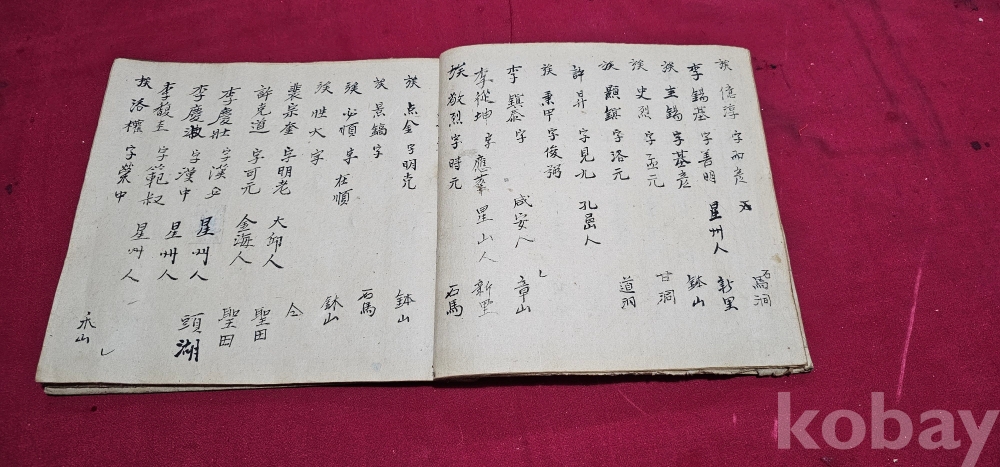 族 億淳 字而彦 石馬洞
李錫基 字善明 星州人 新里
族 圭錫 字基彦 鉢山
族 史烈 字孟元 甘洞
族 顯鎮 字洛元 道洞
許昇 字見九 孔嵒人
族 秉甲 字俊弼
李鎭 字 咸安人 章山
李從坤 字應 星山人 新里
族 敬烈 字時元 石馬
族 点金 字明克 鉢山
族 景鎬 字 石馬
族 必順 字 在順 鉢山
族 性大 字 仝
裴宗奎 字明老 大邱人 聖田
許克道 字可元 金海人 聖田
李慶壯 字漢 星州人 頭湖
李慶 字漢中 星州人
李馥圭 字範叔 星州人
族 洛權 字榮中 禾山
kobay